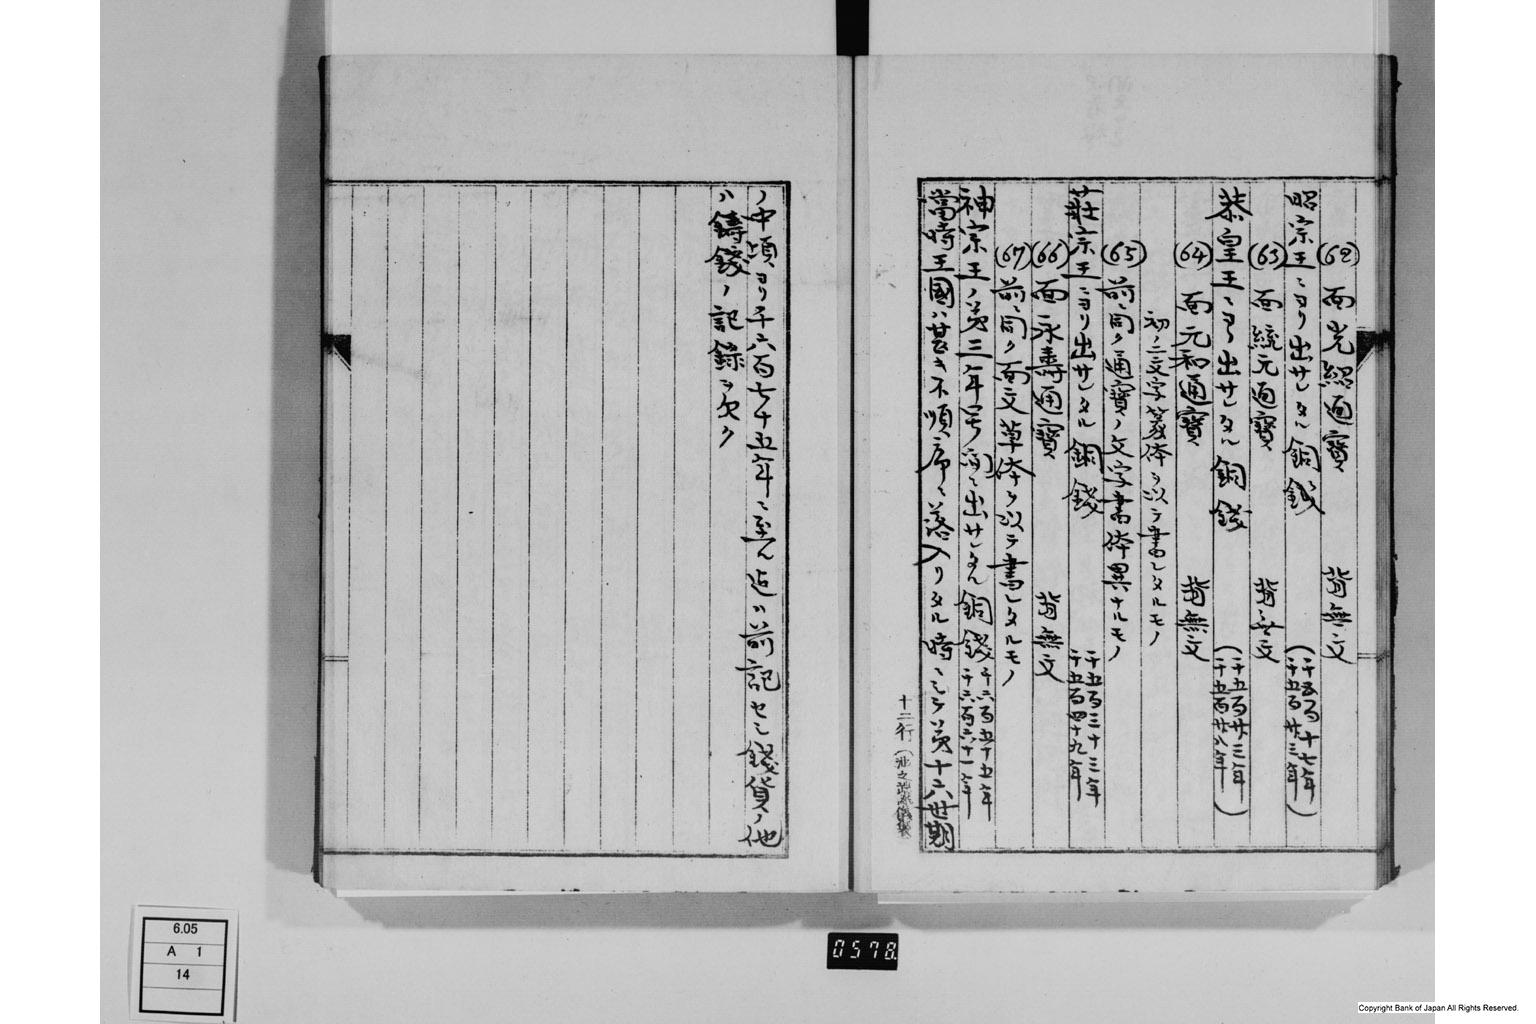 (62) 面光紹通寳 背無文
昭宗王ニヨリ出サレタル銅錢 (千五百十七年 千五百廿三年)
(63) 面統元通寳 背無文
恭皇王ニヨリ出サレタル銅錢 (千五百廿三年 千五百廿八年)
(64) 面元和通寳 背無文
初ノ二文字篆体ヲ以テ書レタルモノ
(65) 前ニ同ク通寳ノ文字書体異ナルモノ
莊宗王ニヨリ出サレタル銅錢 千五百三十三年 千五百四十九年
(66) 面永壽通寳 背無文
(67) 前ニ同ク面文草体ヲ以テ書レタルモノ
神宗王ノ第三年号間ニ出サレタル銅錢 千六百五十五年 千六百六十一年
當時王國ハ甚キ不順序ニ落入リタル時ニシテ第十六世期
十二行
ノ中頃ヨリ千六百七十五年ニ至ル迄ハ前記セシ錢貨ノ他
ハ鋳錢ノ記録ヲ欠ク
6.05
A 1
14
0578
Copyright Bank of Japan All Rights Reserved.